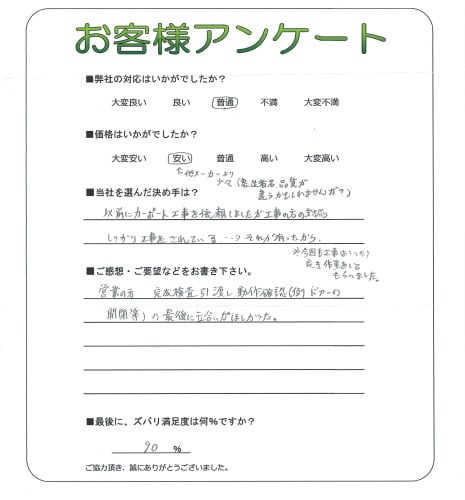 お客様アンケート
■弊社の対応はいかがでしたか?
大変良い 良い 普通 不満 大変不満
■価格はいかがでしたか?
大変安い 安い 普通 高い 大変高い
他メーカーより
少々(製造者名、品質が
違うかもしれませんが?)
■当社を選んだ決め手は?
以前にカーポート工事を依頼しましたが工事の方の対応
しっかり工事をされている…→それが有ったから、
※今回も工事はしっかり
良き作業をして
もらいました。
■ご感想・ご要望などをお書き下さい。
営業の方 完成検査引渡し動作確認(例ドアーの
開閉等)の最後に立会いがほしかった。
■最後に、ズバリ満足度は何%ですか?
90 %
ご協力頂き、誠にありがとうございました。